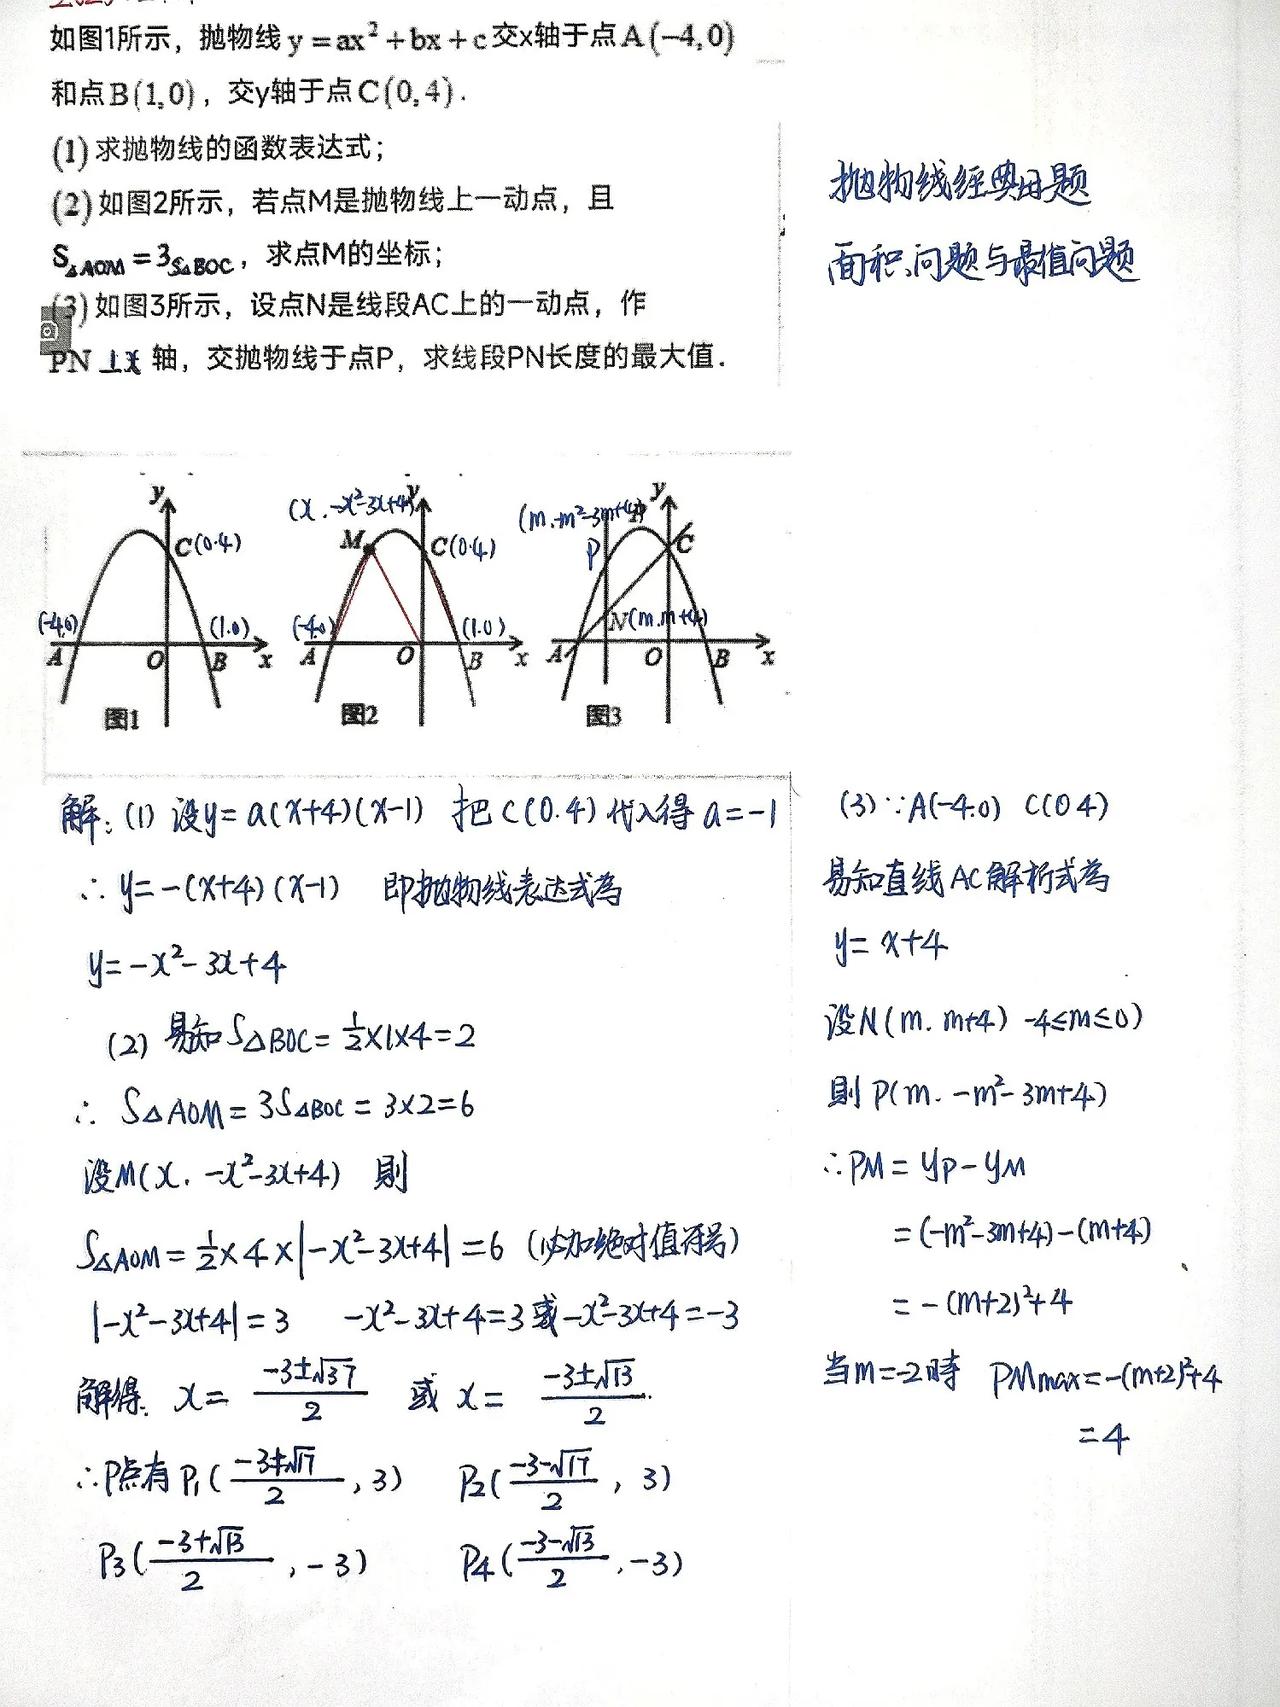 如图1所示，抛物线y=ax²+bx+c交x轴于点A(-4,0)
和点B(1,0)，交y轴于点C(0,4).
(1)求抛物线的函数表达式；
(2)如图2所示，若点M是抛物线上一动点，且
S△AOM=3S△BOC，求点M的坐标；
(3)如图3所示，设点N是线段AC上的一动点，作
PN⊥x轴，交抛物线于点P，求线段PN长度的最大值.
抛物线经典母题
面积问题与最值问题
y
C(0.4)
(-4.0)
(1.0)
A
O
B
x
图1
(x.-x²-3x+4)
y
M
C(0.4)
(-4.0)
(1.0)
A
O
B
x
图2
(m.-m²-3m+4)
y
P
C
N(m.m+4)
A
O
B
x
图3
解:(1) 设y=a(x+4)(x-1) 把C(0.4)代入得a=-1
∴y=-(x+4)(x-1) 即抛物线表达式为
y=-x²-3x+4
(2) 易知S△BOC=1/2×1×4=2
∴ S△AOM=3S△BOC=3×2=6
设M(x. -x²-3x+4) 则
S△AOM=1/2×4×|-x²-3x+4|=6 (必加绝对值符号)
|-x²-3x+4|=3 -x²-3x+4=3或-x²-3x+4=-3
解得. x=(-3±√37)/2 或 x=(-3±√13)/2.
∴P点有P₁((-3+√17)/2, 3) P₂((-3-√17)/2, 3)
P₃((-3+√13)/2, -3) P₄((-3-√13)/2, -3)
(3)∵A(-4.0) C(0 4)
易知直线AC解析式为
y=x+4
设N(m. m+4) -4≤m≤0)
则P(m. -m²-3m+4)
∴PM=yP-yM
=(-m²-3m+4)-(m+4)
=-(m+2)²+4
当m=-2时 PMmax=-(m+2)²+4
=4